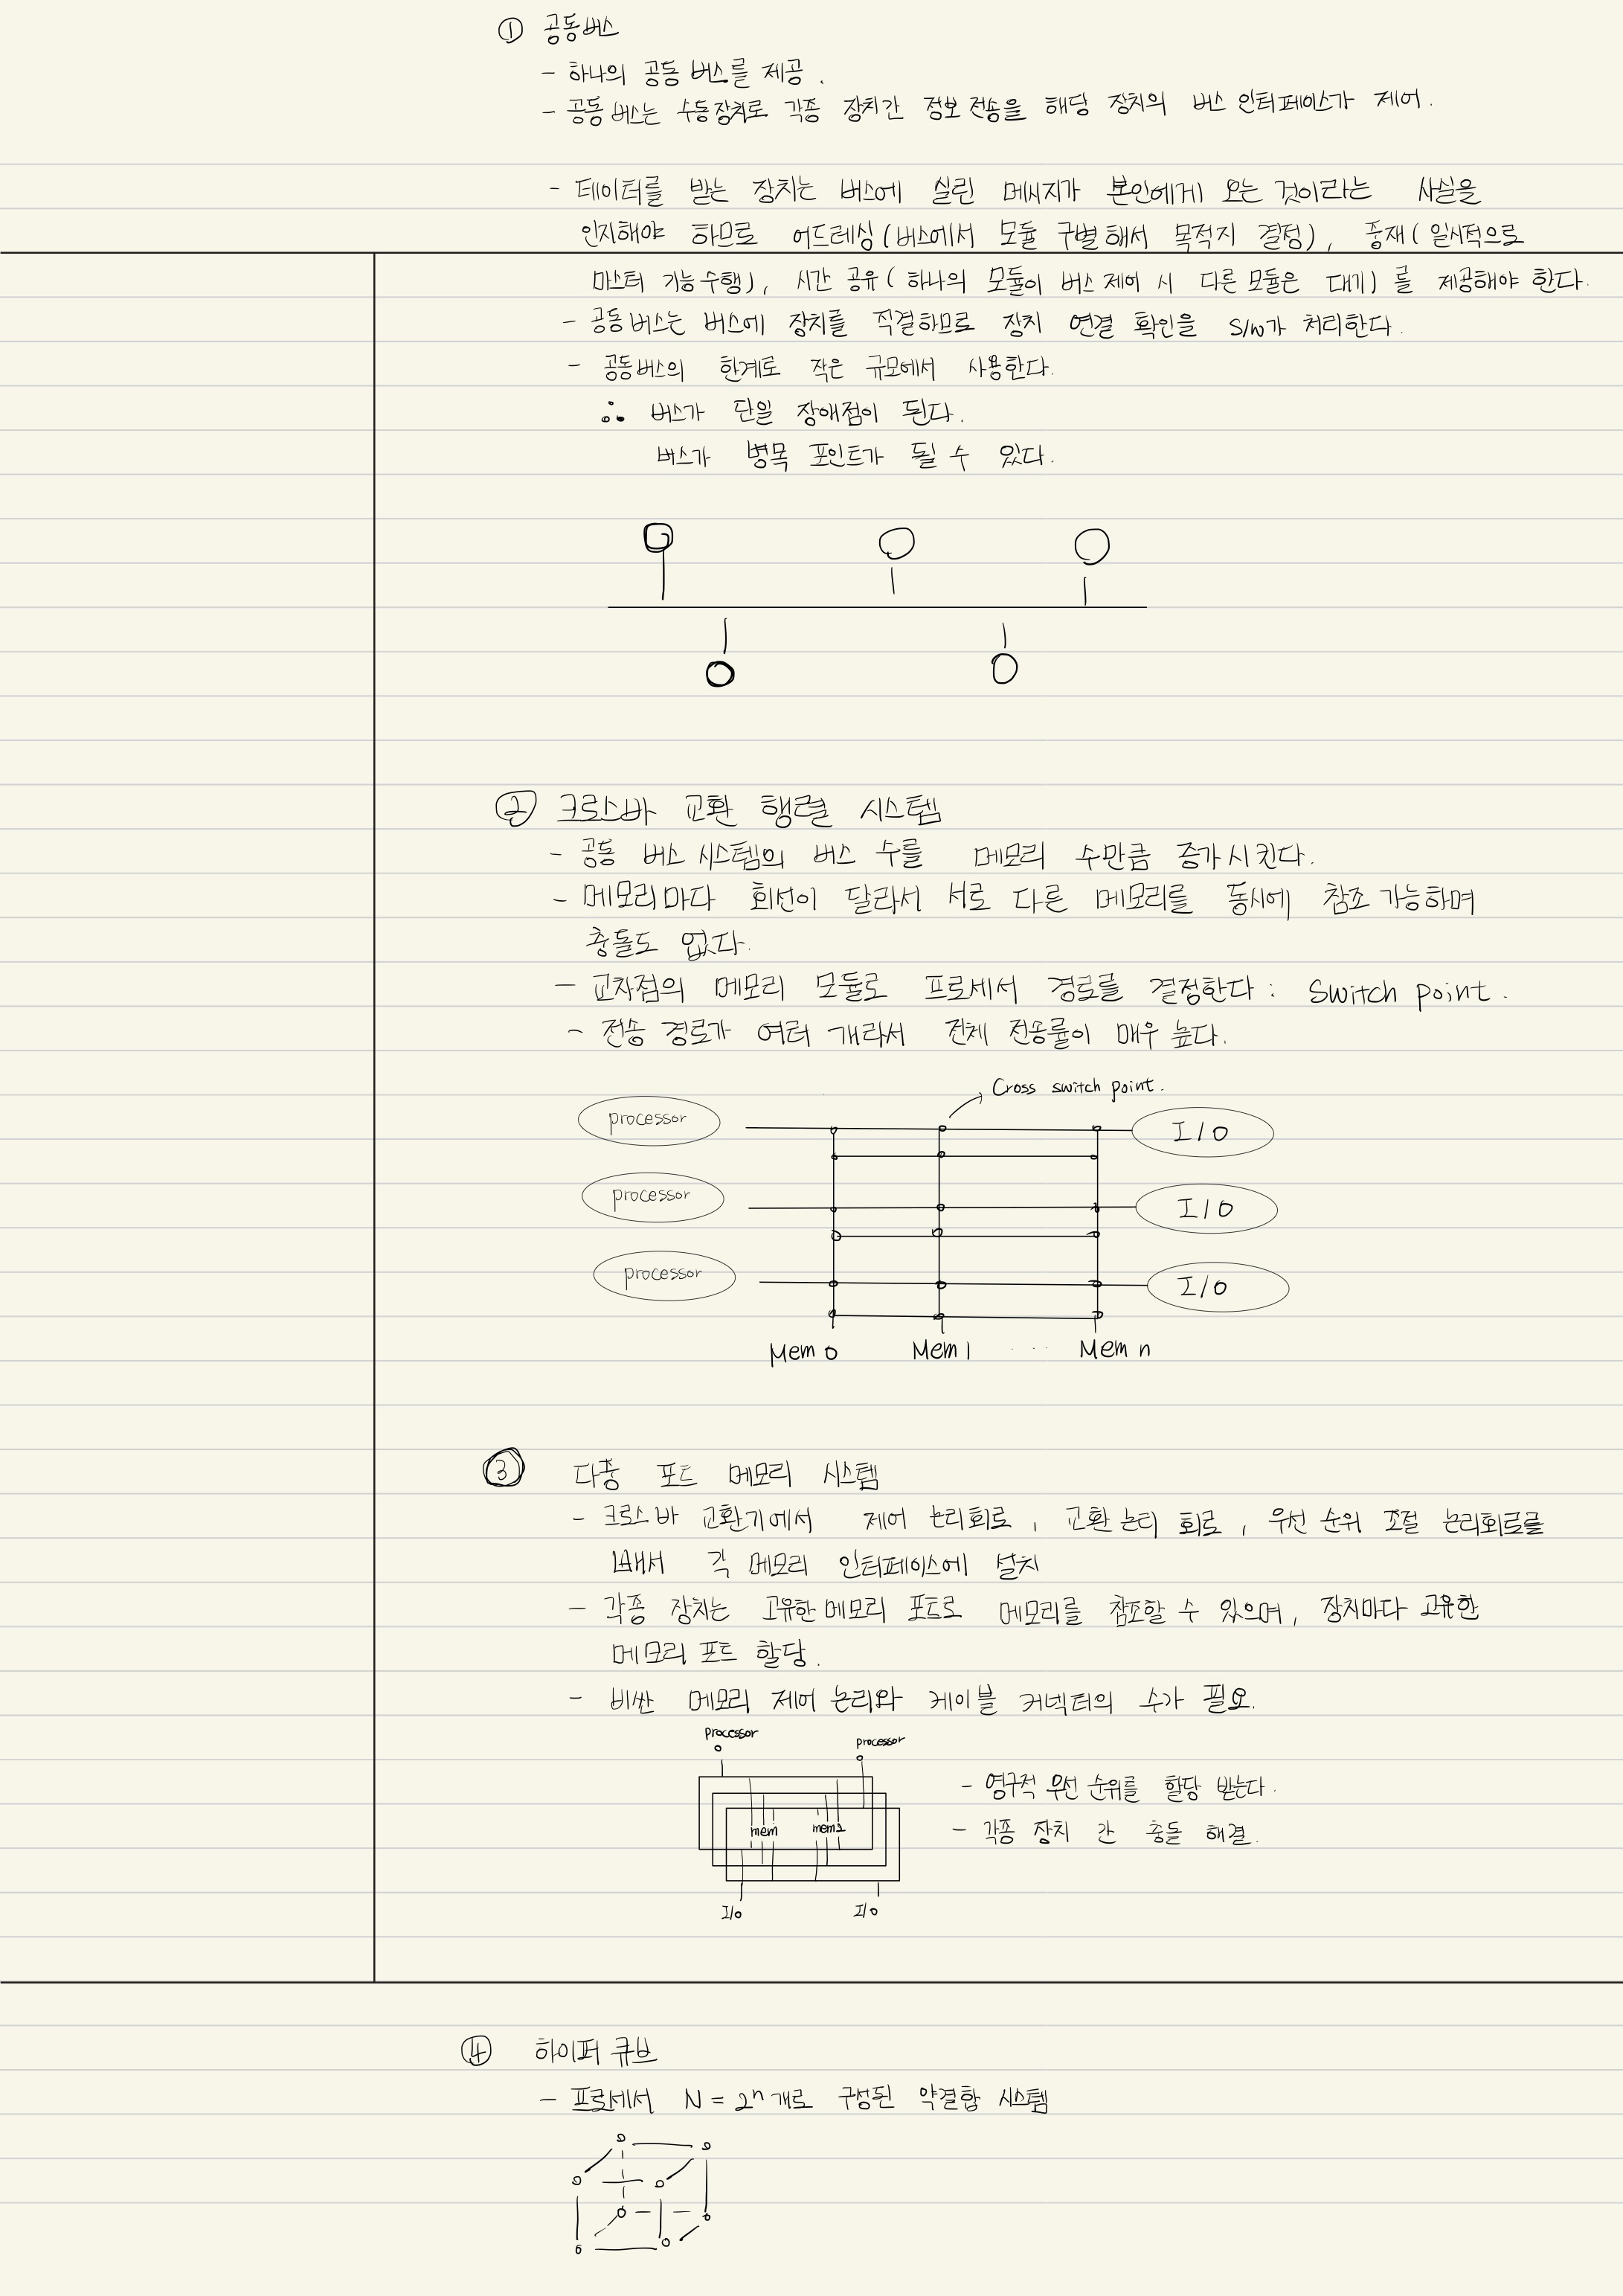 ① 공동버스
- 하나의 공동 버스를 제공.
- 공동 버스는 수동장치로 각종 장치간 정보 전송을 해당 장치의 버스 인터페이스가 제어.
- 데이터를 받는 장치는 버스에 실린 메시지가 본인에게 오는 것이라는 사실을
인지해야 하므로 어드레싱(버스에서 모듈 구별해서 목적지 결정), 중재(일시적으로
마스터 기능수행), 시간 공유(하나의 모듈이 버스 제어 시 다른 모듈은 대기)를 제공해야 한다.
- 공동버스는 버스에 장치를 직결하므로 장치 연결 확인을 S/W가 처리한다.
- 공동버스의 한계로 작은 규모에서 사용한다.
∴ 버스가 단일 장애점이 된다.
버스가 병목 포인트가 될 수 있다.
② 크로스바 교환 행렬 시스템
- 공동 버스 시스템의 버스 수를 메모리 수만큼 증가시킨다.
- 메모리마다 회선이 달라서 서로 다른 메모리를 동시에 참조 가능하며
충돌도 없다.
- 교차점의 메모리 모듈로 프로세서 경로를 결정한다: Switch point.
- 전송 경로가 여러 개라서 전체 전송률이 매우 높다.
Cross switch point.
processor I/O
processor I/O
processor I/O
Mem 0 Mem 1 ... Mem n
③ 다중 포트 메모리 시스템
- 크로스바 교환기에서 제어 논리회로, 교환 논리 회로, 우선 순위 조절 논리회로를
빼서 각 메모리 인터페이스에 설치
- 각종 장치는 고유한 메모리 포트로 메모리를 참조할 수 있으며, 장치마다 고유한
메모리 포트 할당.
- 비싼 메모리 제어 논리와 케이블 커넥터의 수가 필요.
processor processor
- 영구적 우선 순위를 할당 받는다.
mem mem1
- 각종 장치 간 충돌 해결.
I/O I/O
④ 하이퍼 큐브
- 프로세서 N = 2ⁿ개로 구성된 약결합 시스템